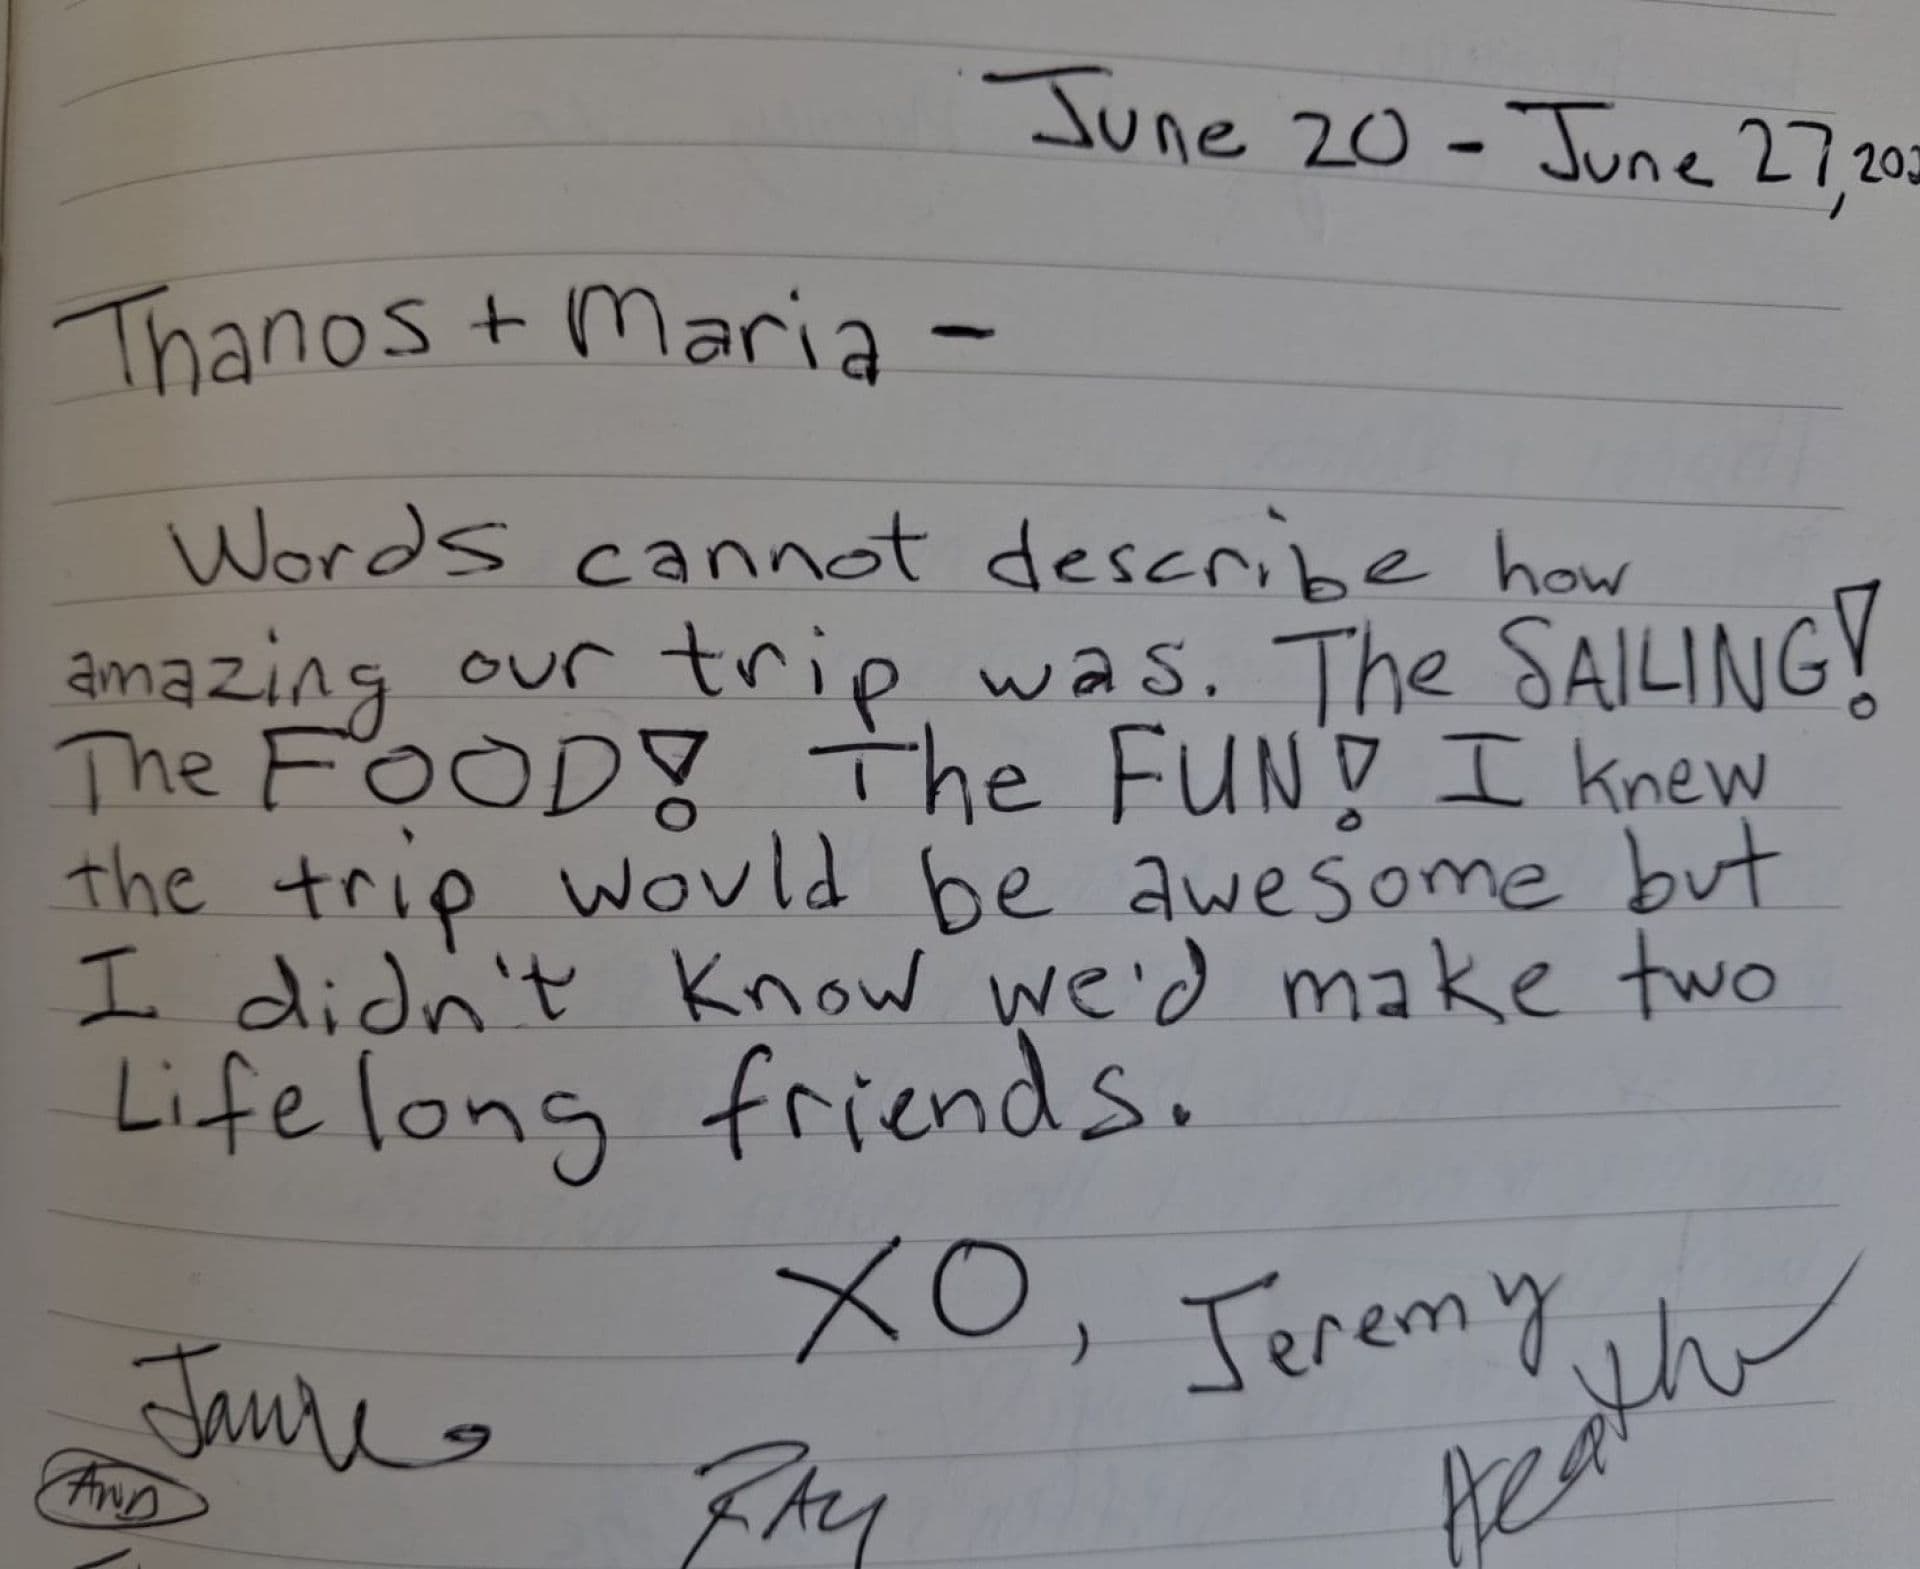 June 20 - June 27, 202
Thanos + Maria -
Words cannot describe how
amazing our trip was. The SAILING!
The FOOD! The FUN! I knew
the trip would be awesome but
I didn't know we'd make two
Lifelong friends.
XO, Jeremy
Heather
RAY